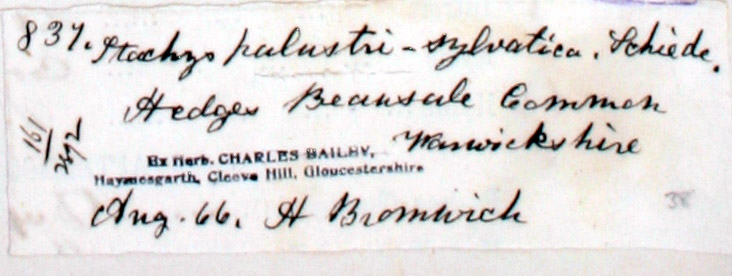 837. Stachys palustri-sylvatica. Schiede.
Hedges Beausale Common
Warwickshire
161
Ex Herb. CHARLES BAILEY,
Haymesgarth, Cleeve Hill, Gloucestershire
Aug. 66. H Bromwich
38